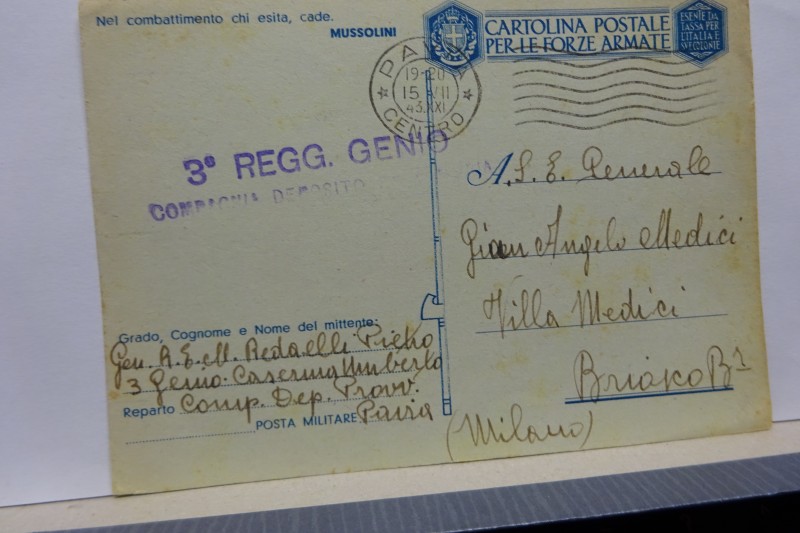 Nel combattimento chi esita, cade.
MUSSOLINI
CARTOLINA POSTALE
PER LE FORZE ARMATE
ESENTE DA
TASSA PER
L'ITALIA E
SUE COLONIE
PAVIA
19-20
15 VII
43.XXI
CENTRO
3° REGG. GENIO
COMPAGNIA DEPOSITO
A. S. E. Generale
Gian Angelo Medici
Villa Medici
Briosco Bza
(Milano)
Grado, Cognome e Nome del mittente:
Gen. A.E.M. Redaelli Piero
3 Genio. Caserma Umberto
Reparto Comp. Dep. Provv.
POSTA MILITARE Pavia